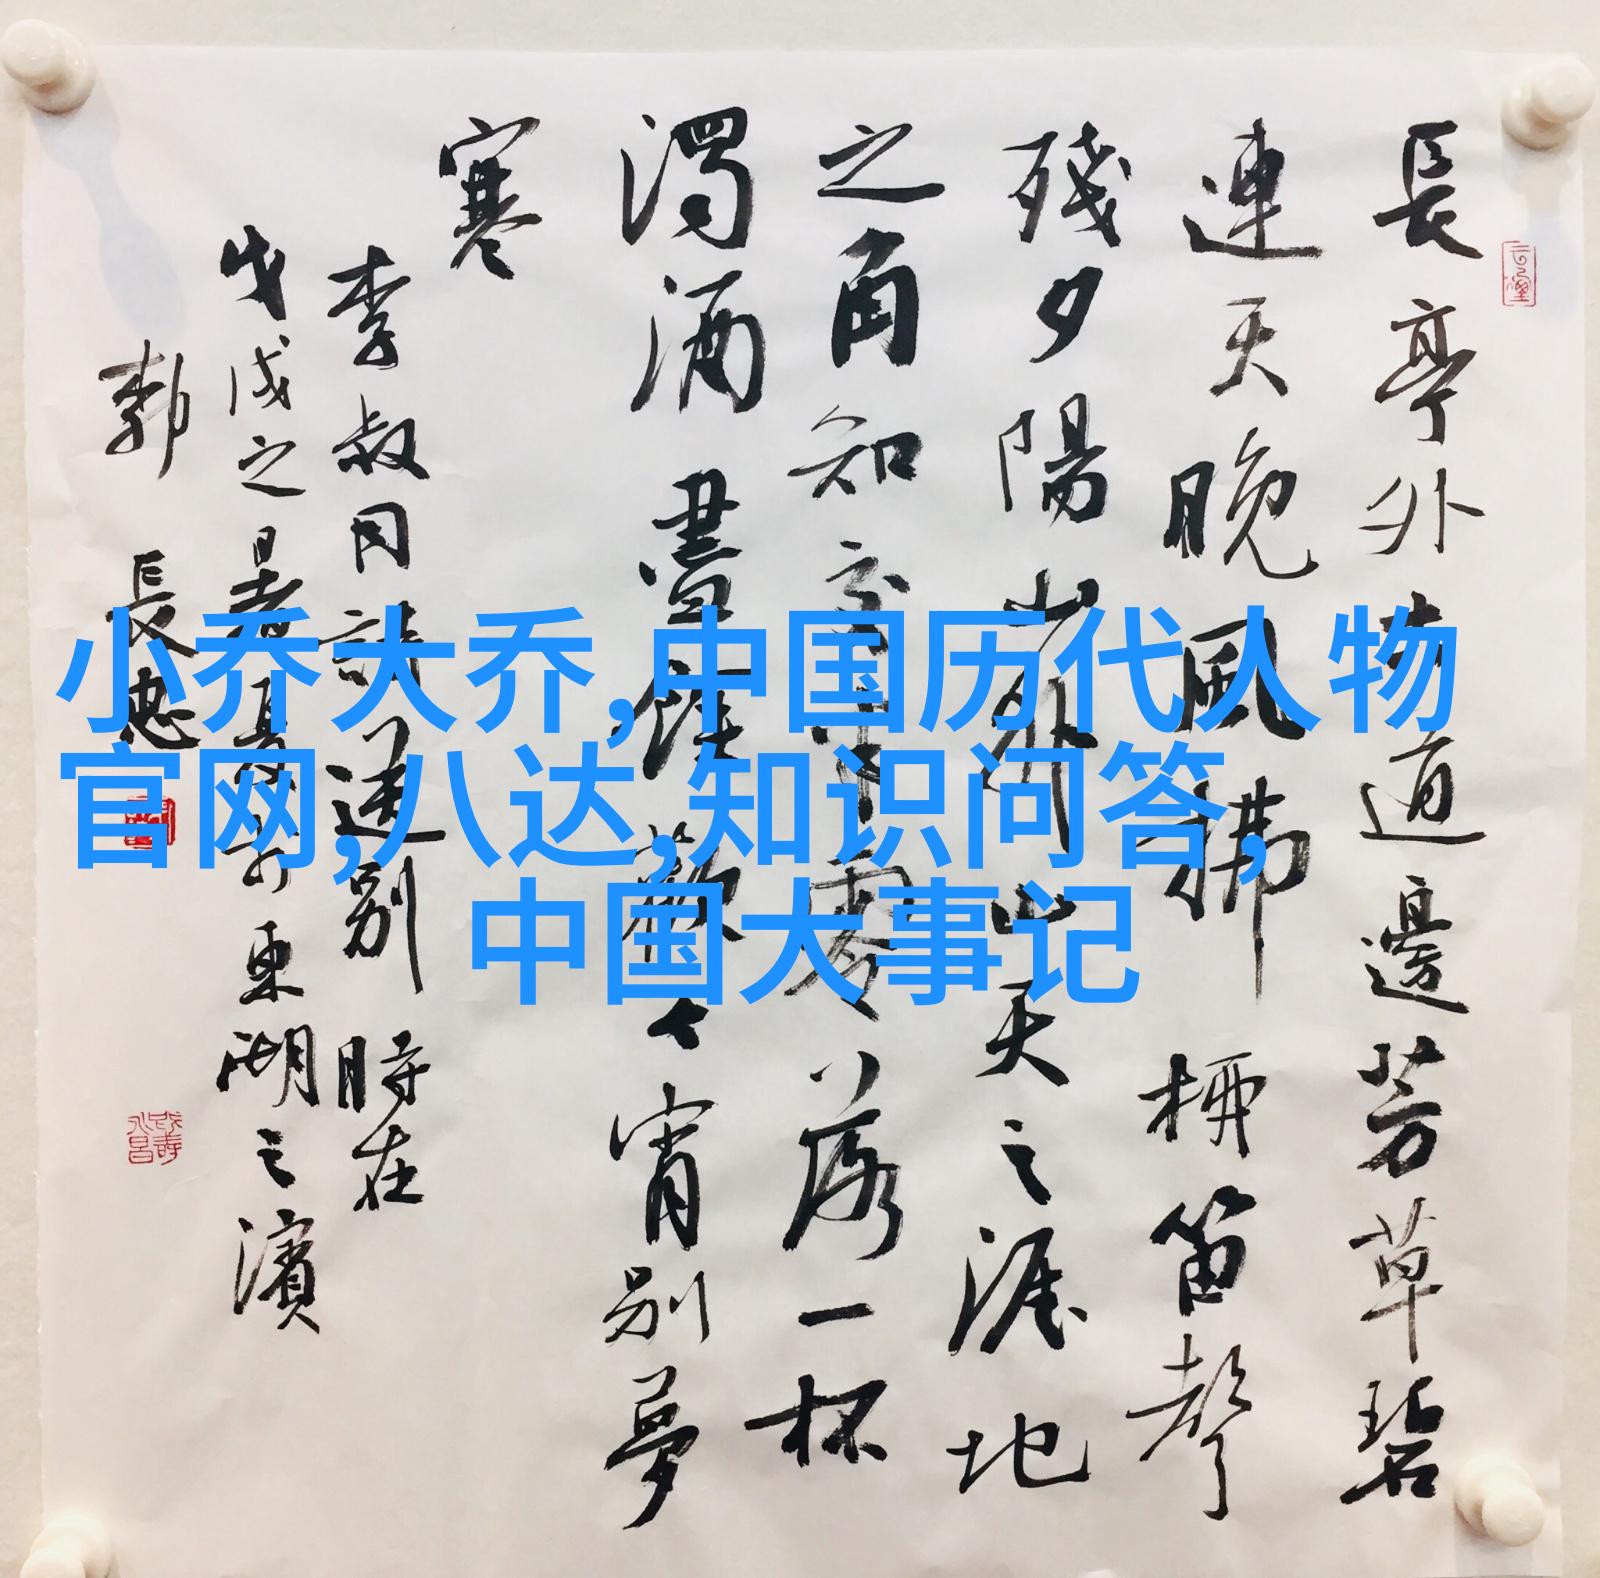 長亭外古道邊芳草碧
連天晚風拂柳笛聲
殘夕陽山外山天之涯地
之角知交半零落一杯
濁酒盡餘歡今宵別夢
寒
李叔同詩送别 時在
戊戌之
東湖之濱
郭 長忠
小乔大乔,中国历代人物
官网,八达,知识问答,
中国大事记